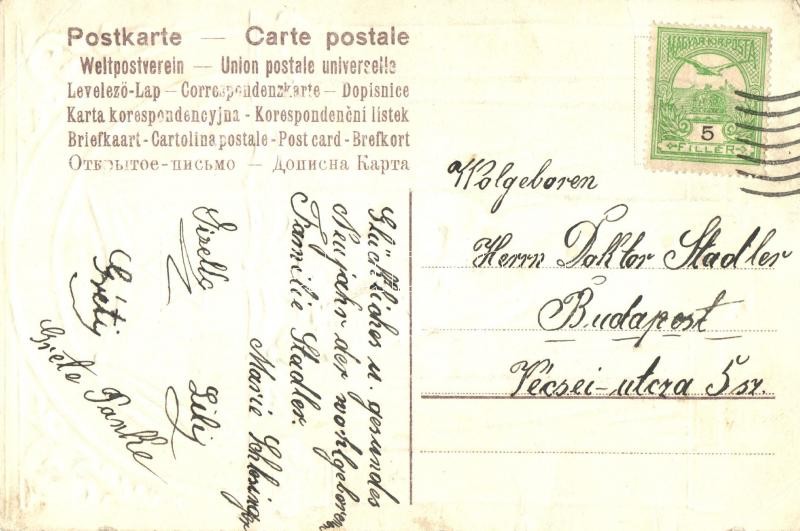 Postkarte — Carte postale
Weltpostverein — Union postale universelle
Levelező-Lap — Correspondenzkarte — Dopisnice
Karta korespondencyjna - Korespondenční listek
Briefkaart - Cartolina postale - Post card - Brefkort
Открытое-письмо — Дописна Карта
MAGYAR KIR. POSTA
5
FILLÉR
Wolgeboren
Herrn Doktor Stadler
Budapest
Vécsei-utcza 5 sz.
Glückliches u. gesundes
Neujahr der wohlgeboren
Familie Stadler.
Marie Schlesinger
Gizella
Lilij
Grétij
Grete Panke